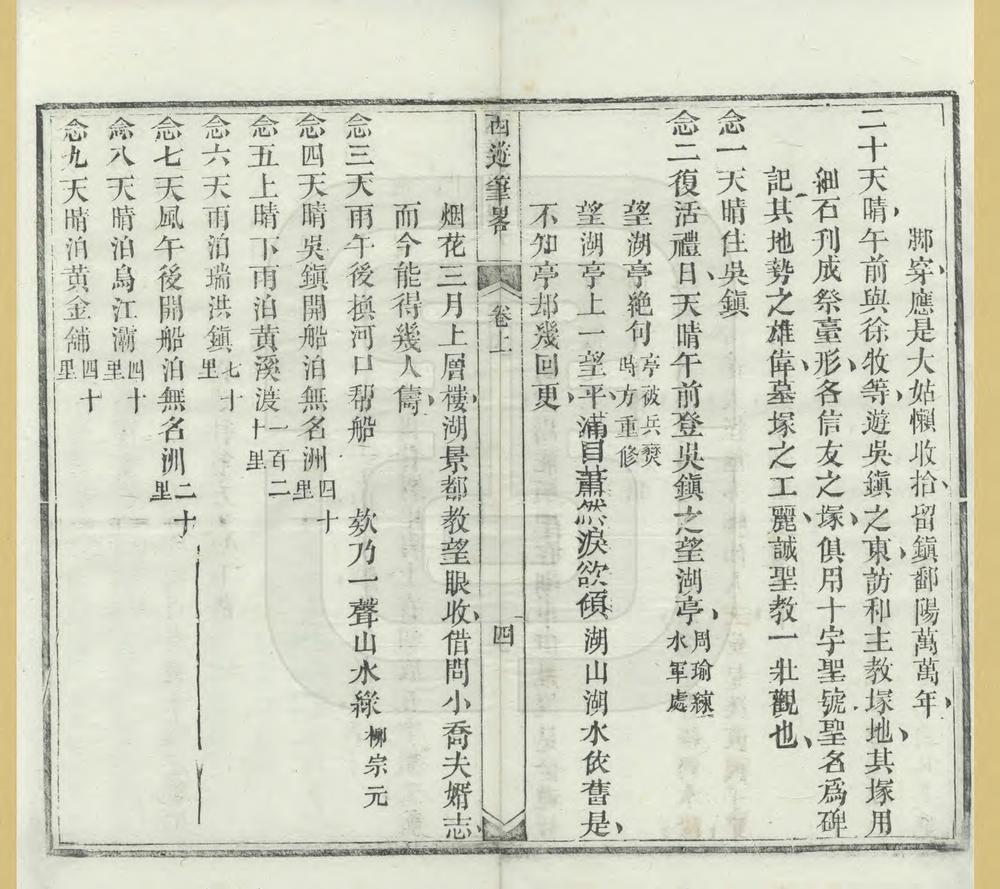 鄰穿應是大姑懶收拾留鎮鄱陽萬萬年
二十天晴午前與徐牧等遊吳鎮之東訪和主教塚地其塚用
細石刋成祭臺形各信友之塚俱用十字聖號聖名爲碑
記其地勢之雄偉墓塚之工麗誠聖教一壯觀也
念一天晴住吳鎮
念二復活禮日天晴午前登吳鎮之望湖亭周瑜練水軍處
望湖亭絶句亭被兵燹時方重修
望湖亭上一望平滿目蕭然淚欲傾湖山湖水依舊是
不知亭却幾回更
西遊筆畧 卷上 四
烟花三月上層樓湖景都教望眼收借問小喬夫婿志
而今能得幾人儔
念三天雨午後換河口帮船 欸乃一聲山水綠柳宗元
念四天晴吳鎮開船泊無名洲四十里
念五上晴下雨泊黃溪渡一百二十里
念六天雨泊瑞洪鎮七十里
念七天風午後開船泊無名洲二十里
念八天晴泊烏江灞四十里
念九天晴泊黃金舖四十里